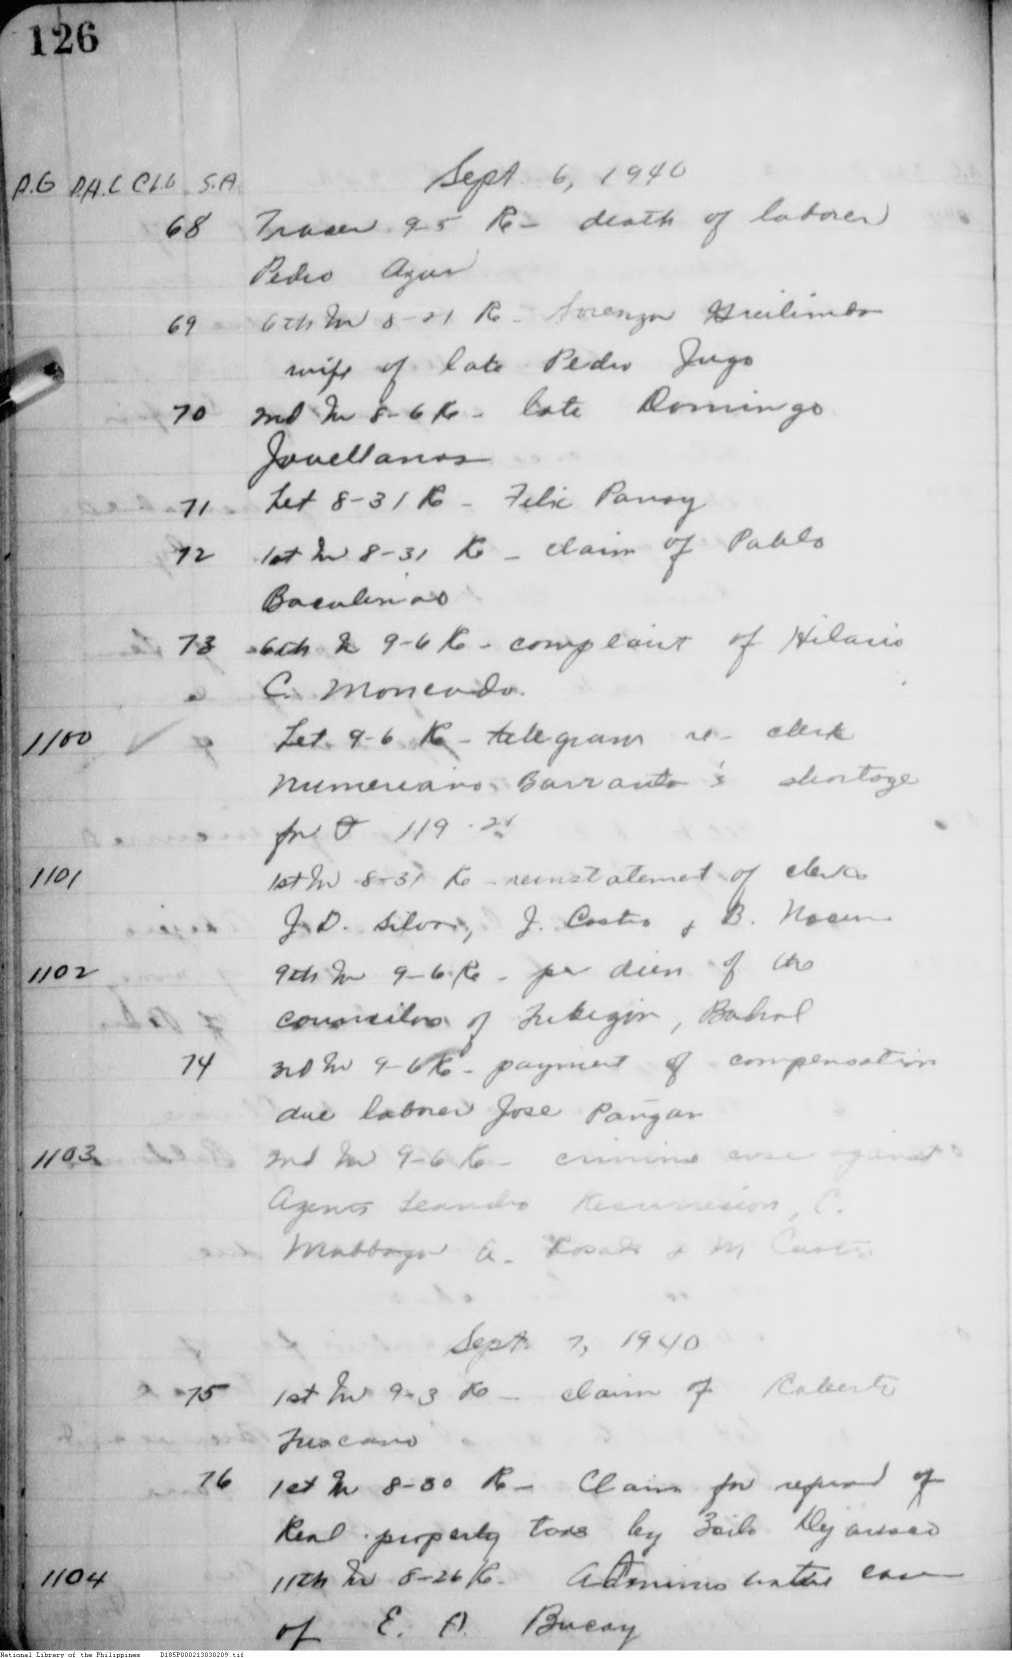 126
Sept. 6, 1940
P.G P.A.C C.L.G S.A.
68 Tracer 9-5 Re- death of laborer
Pedro Agus
69 6th In 8-21 Re- Lorenza
wife of late Pedro Jugo
70 2nd In 8-6 Re- late Domingo
Jovellanos
71 Let 8-31 Re- Felix Panoy
72 1st In 8-31 Re- claim of Pablo
Baculinao
73 6th In 9-6 Re- complaint of Hilario
C. Moncado.
1100 Let. 9-6 Re- telegram re- clerk
Numeriano Barranta's shortage
for ₱ 119.
1101 1st In 8-31 Re- reinstatement of clerks
J. D. Silva, J. Castro & B.
1102 9th In 9-6 Re- per diem of the
councilors of Tubigon, Bohol
74 3rd In 9-6 Re- payment of compensation
due laborer Jose Pangan
1103 2nd In 9-6 Re- criminal case against
Agents Leandro Resurreccion, C.
Mabbagu A. Rosado & M Castro
Sept. 7, 1940
75 1st In 9-3 Re- claim of Roberto
Tuscano
76 1st In 8-30 Re- Claim for refund of
Real property taxes by Zoilo
1104 11th In 8-26 Re- Administrative case
of E. A. Bucoy
National Library of the Philippines D185P000213030209.tif